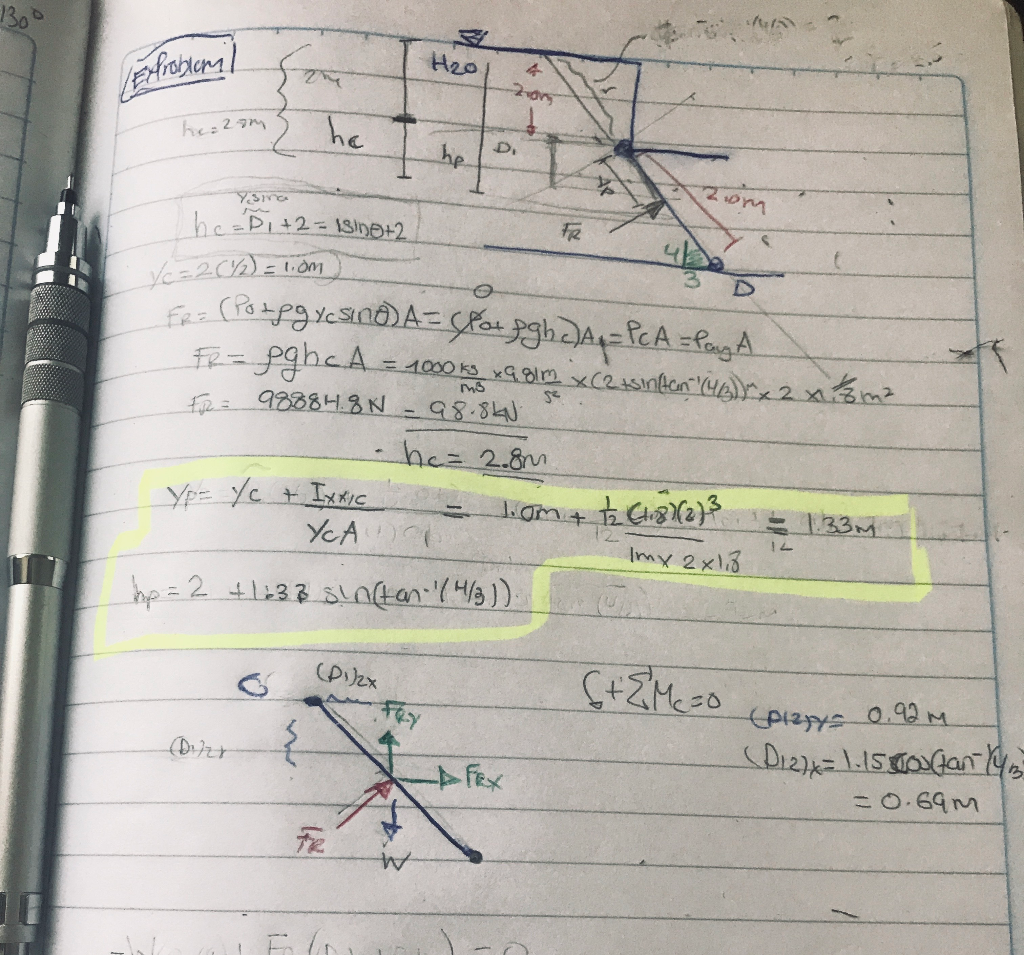 130°
Exproblem
H2O
2m
hc=2.8m
hc
hp
2.0m
D1
r
2.0m
FR
4
3
D
ycsinθ
hc = D1 + 2 = 1sinθ+2
yc = 2(1/2) = 1.0m
FR = (Po + ρg yc sinθ)A = (Po + ρghc)A = PcA = PavgA
FR = ρghcA = 1000 kg/m3 × 9.81 m/s2 × (2+sin(tan-1(4/3))m × 2 × 1.8m2
FR = 98884.8N = 98.8kN
hc = 2.8m
yp = yc + Ixx,c/ycA = 1.0m + 1/12 (1.8)(2)3 / 1m × 2 × 1.8 = 1.33m
hp = 2 + 1.33 sin(tan-1(4/3))
(D1)2x
FRy
(D1)2y
FRx
FR
W
+ΣMc=0
(D12)y = 0.92m
(D12)x = 1.15cos(tan-1(4/3)
= 0.69m